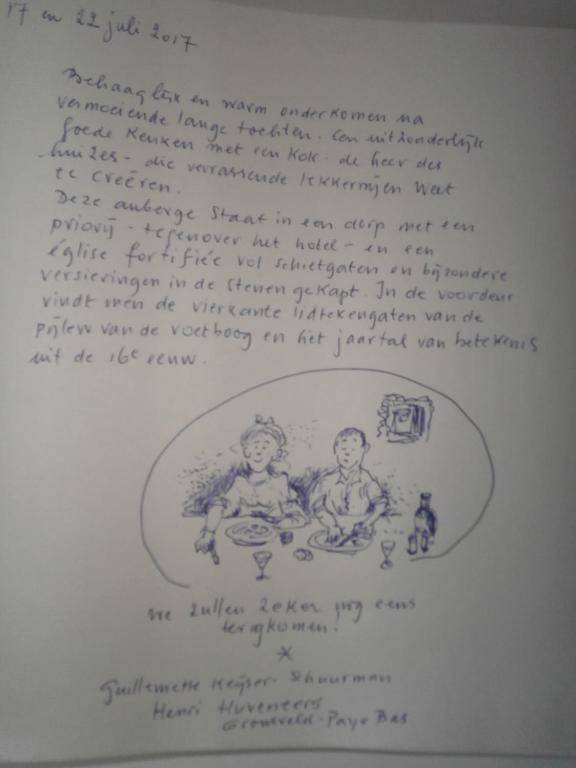 17 en 22 juli 2017
Behaaglijk en warm onderkomen na
vermoeiende lange tochten. Een uitzonderlijk
goede keuken met een kok - de heer des
huizes - die verrassende lekkernijen weet
te creëren.
Deze auberge staat in een dorp met een
priorij - tegenover het hotel - en een
église fortifiée vol schietgaten en bijzondere
versieringen in de stenen gekapt. In de voordeur
vindt men de vierkante lidtekengaten van de
pijlen van de voetboog en het jaartal van betekenis
uit de 16e eeuw.
We zullen zeker nog eens
terugkomen!
Guillemette Keijser-Schuurman
Henri Huveneers
Gronsveld-Pays Bas